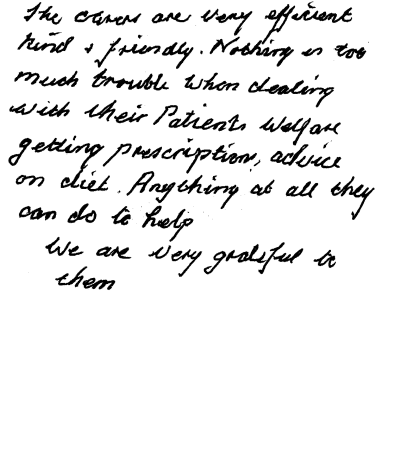 The carers are very efficient
kind + friendly. Nothing is too
much trouble when dealing
with their Patients Welfare
getting prescriptions, advice
on diet. Anything at all they
can do to help
We are very grateful to
them